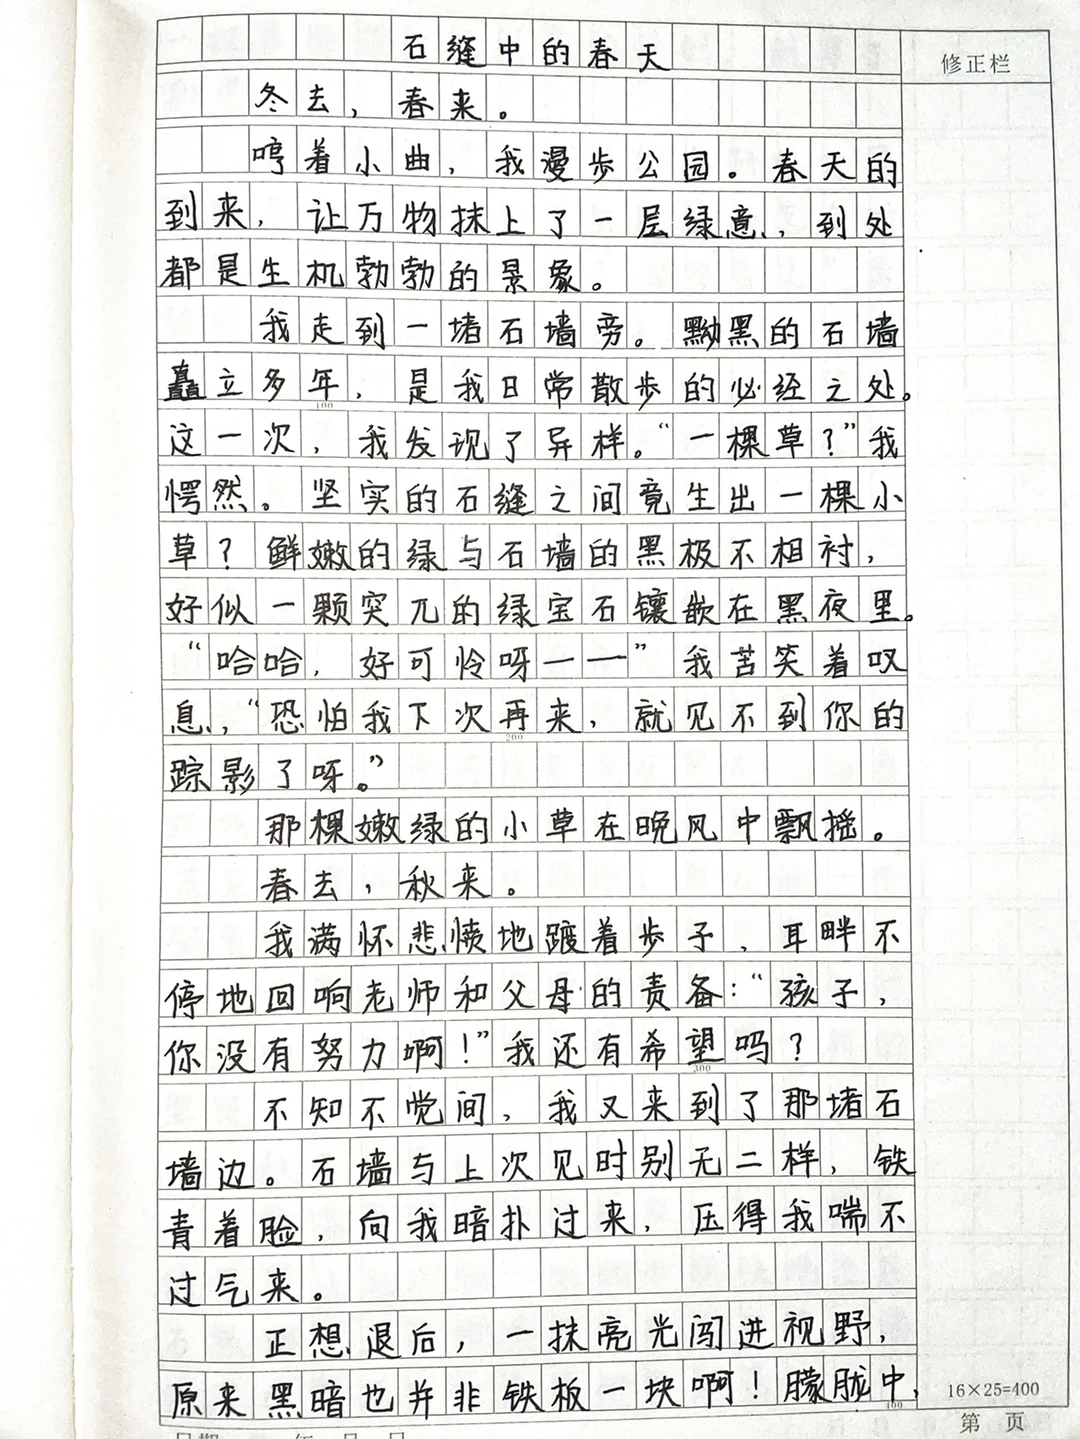 石缝中的春天
修正栏
冬去，春来。
哼着小曲，我漫步公园。春天的
到来，让万物抹上了一层绿意，到处
都是生机勃勃的景象。
我走到一堵石墙旁。黝黑的石墙
矗立多年，是我日常散步的必经之处。
100
这一次，我发现了异样。“一棵草？”我
愕然。坚实的石缝之间竟生出一棵小
草？鲜嫩的绿与石墙的黑极不相衬，
好似一颗突兀的绿宝石镶嵌在黑夜里。
“哈哈，好可怜呀——”我苦笑着叹
息，“恐怕我下次再来，就见不到你的
200
踪影了呀。”
那棵嫩绿的小草在晚风中飘摇。
春去，秋来。
我满怀悲愤地踱着步子，耳畔不
停地回响老师和父母的责备：“孩子，
你没有努力啊！”我还有希望吗？
300
不知不觉间，我又来到了那堵石
墙边。石墙与上次见时别无二样，铁
青着脸，向我暗扑过来，压得我喘不
过气来。
正想退后，一抹亮光闯进视野，
原来黑暗也并非铁板一块啊！朦胧中，
400
16×25=400
第 页